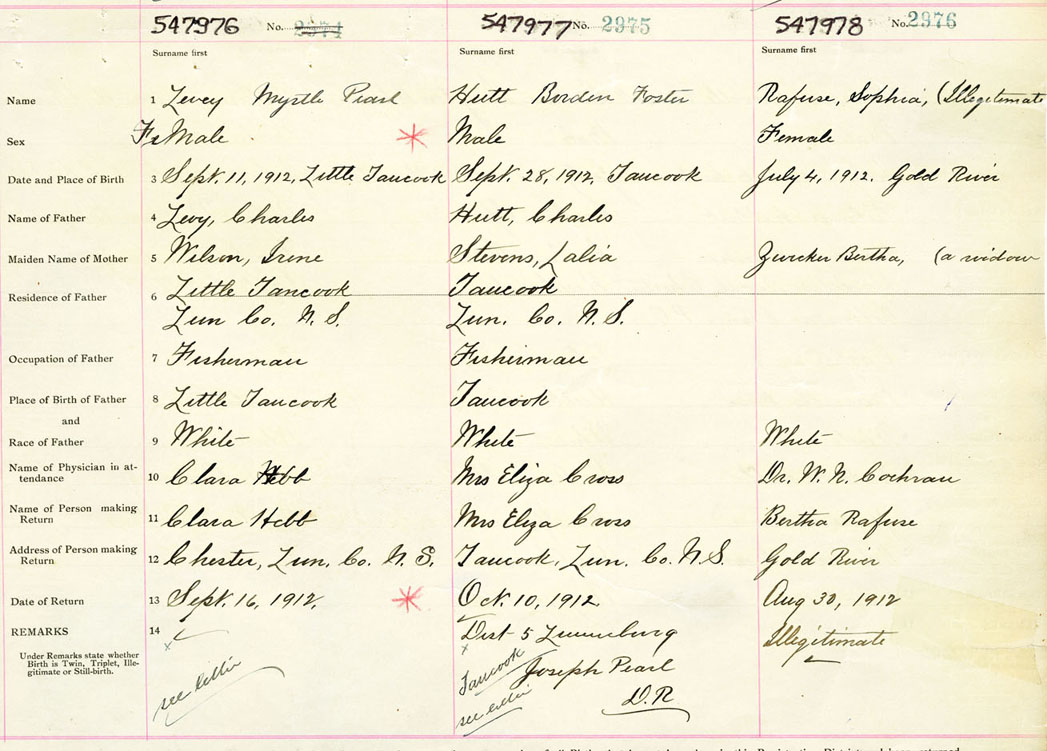 547976 No. 2974 547977 No. 2975 547978 No. 2976
Surname first Surname first Surname first
Name 1 Levey Myrtle Pearl Hutt Borden Foster Rafuse, Sophia, (Illegitimate
Sex FeMale * Male Female
Date and Place of Birth 3 Sept. 11, 1912, Little Tancook Sept. 28, 1912, Tancook July 4, 1912. Gold River
Name of Father 4 Levy, Charles Hutt, Charles
Maiden Name of Mother 5 Wilson, Irene Stevens, Lalia Zwicker Bertha, (a widow
Residence of Father 6 Little Tancook Tancook
Lun Co. N. S. Lun. Co. N. S.
Occupation of Father 7 Fisherman Fisherman
Place of Birth of Father 8 Little Tancook Tancook
and
Race of Father 9 White White White
Name of Physician in at-
tendance 10 Clara Hebb Mrs Eliza Cross Dr. W. N. Cochran
Name of Person making
Return 11 Clara Hebb Mrs Eliza Cross Bertha Rafuse
Address of Person making
Return 12 Chester, Lun. Co. N. S. Tancook, Lun. Co. N. S. Gold River
Date of Return 13 Sept. 16, 1912. * Oct. 10, 1912 Aug 30, 1912
REMARKS 14 x Dist 5 Lunenburg Illegitimate
Under Remarks state whether
Birth is Twin, Triplet, Ille-
gitimate or Still-birth.
see letter x Tancook Joseph Pearl
see letter D. R